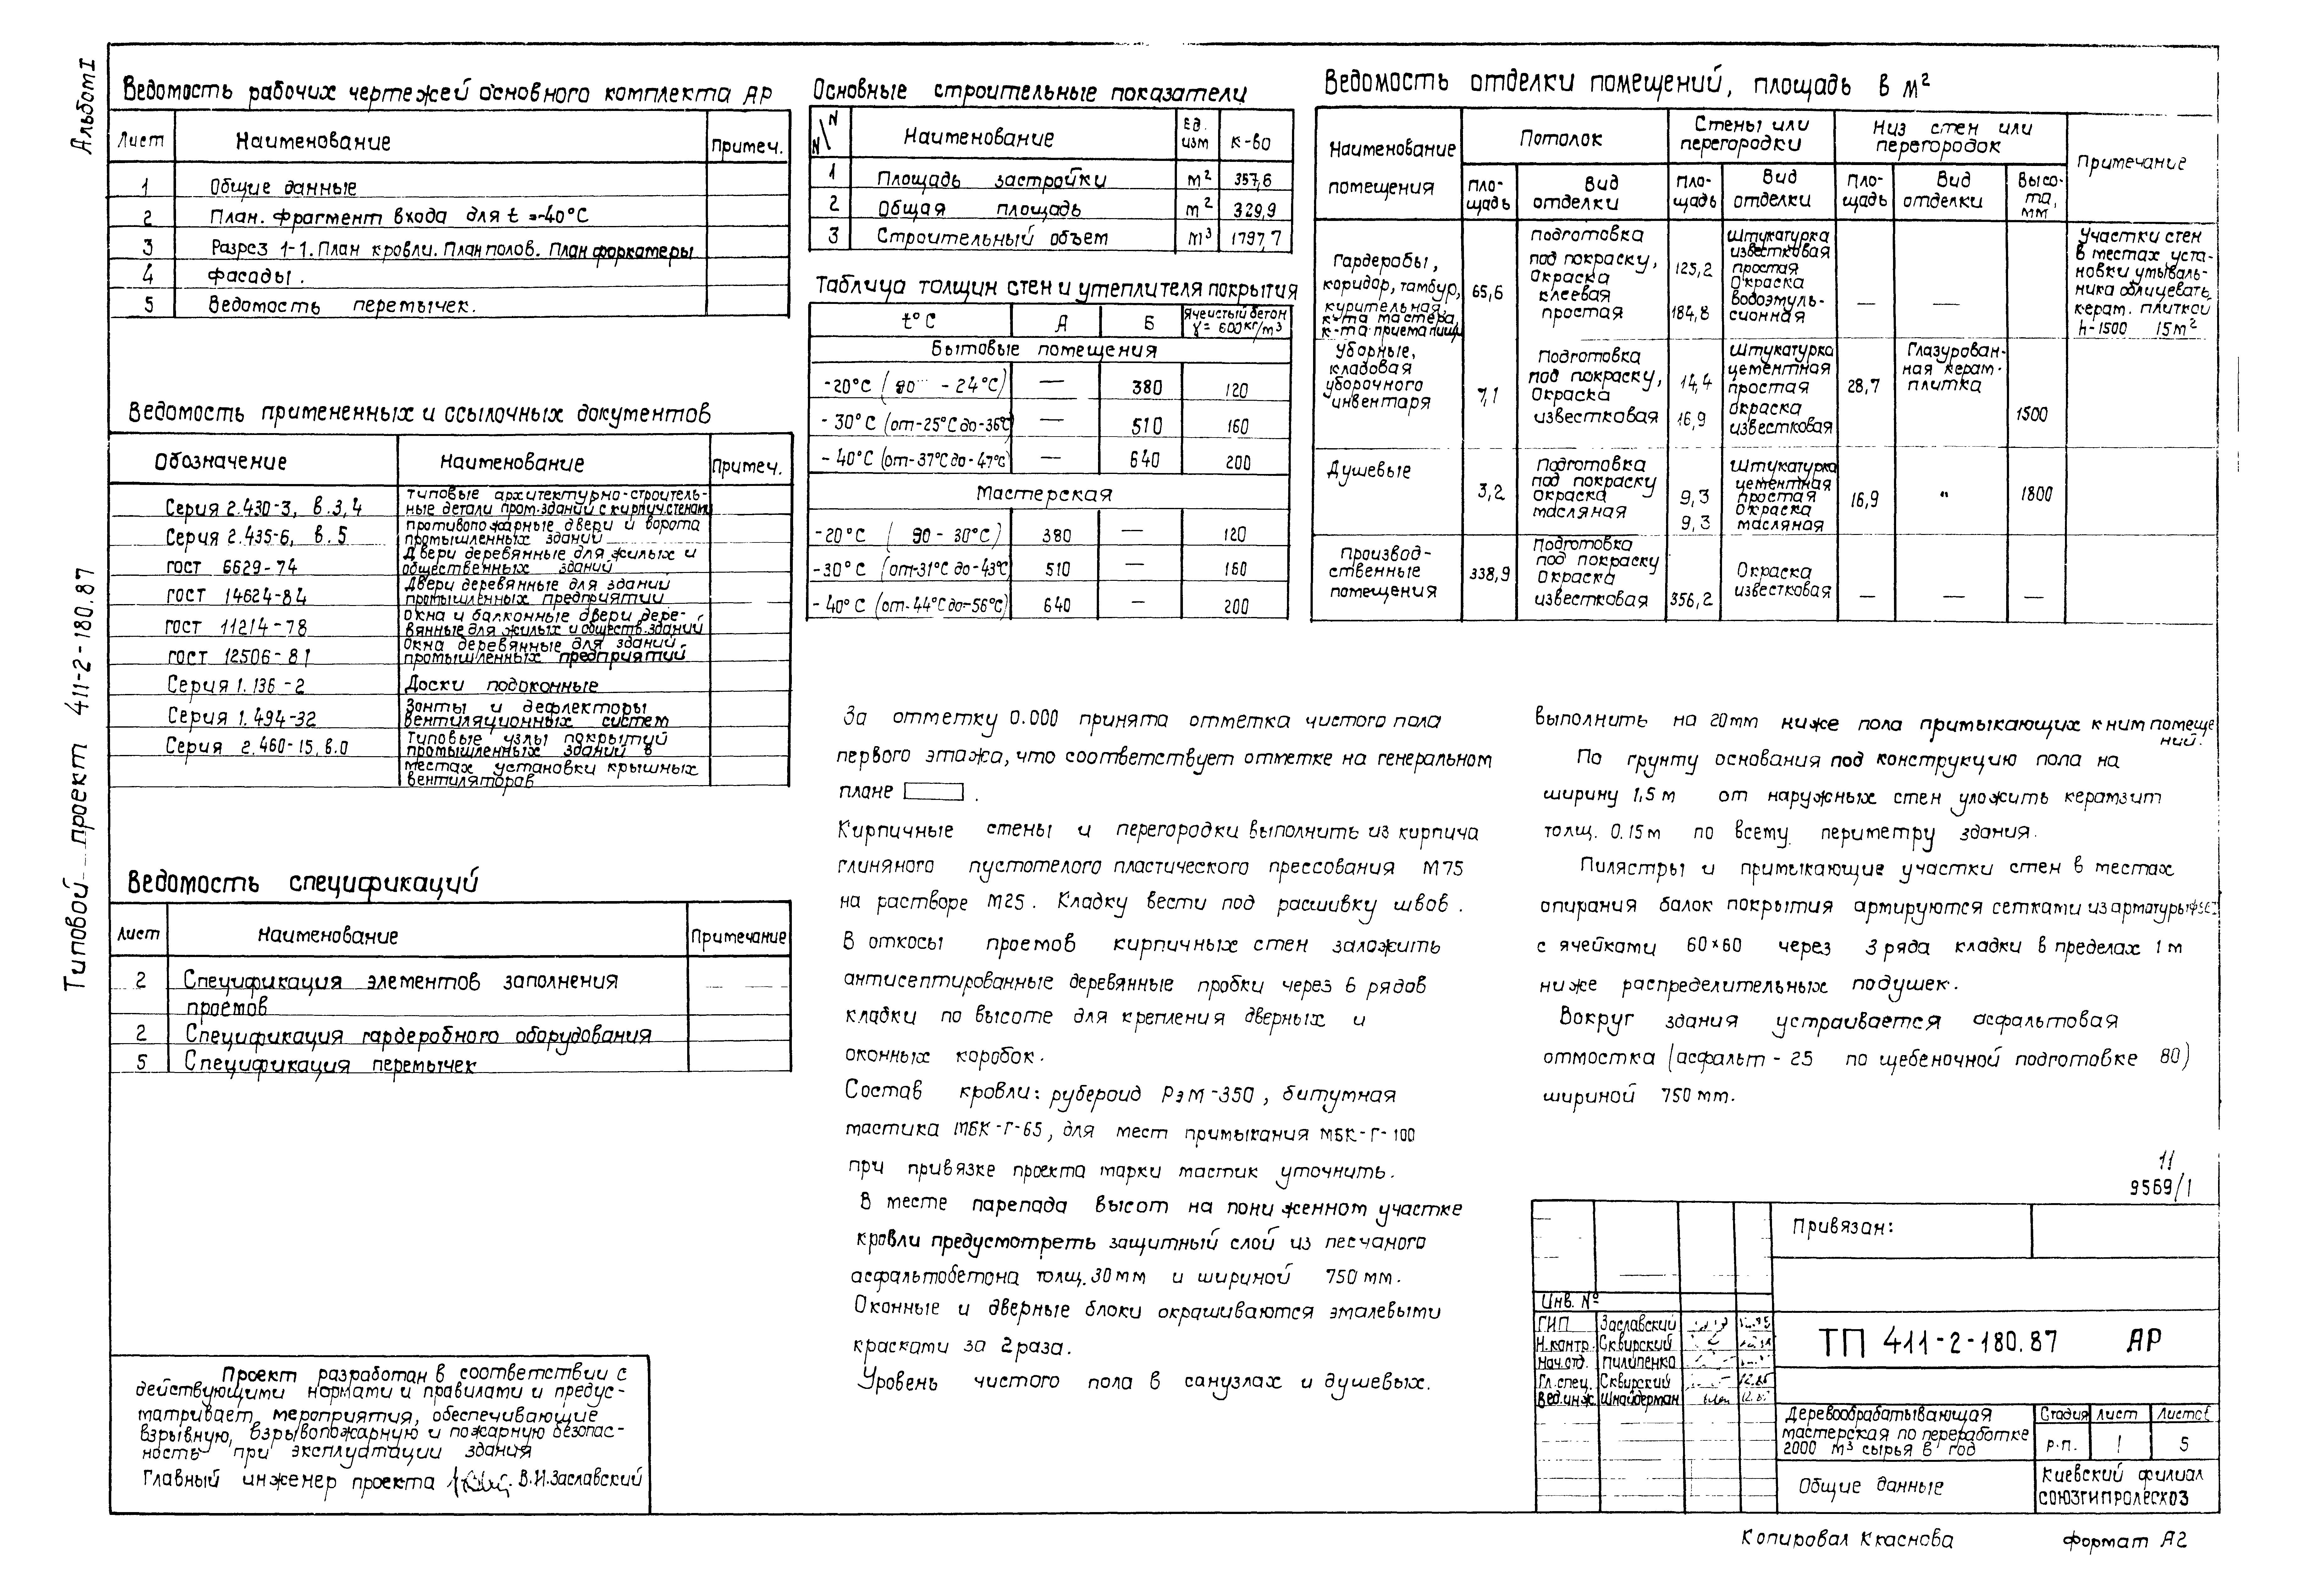 Альбом I
Типовой проект 411-2-180.87
Ведомость рабочих чертежей основного комплекта АР
Лист Наименование Примеч.
1 Общие данные
2 План. Фрагмент входа для t = -40°С
3 Разрез 1-1. План кровли. План полов. План форкамеры
4 Фасады.
5 Ведомость перемычек.
Ведомость примененных и ссылочных документов
Обозначение Наименование Примеч.
Серия 2.430-3, в.3,4 Типовые архитектурно-строитель-
ные детали пром.зданий с кирпич.стенами
Серия 2.435-6, в.5 Противопожарные двери и ворота
промышленных зданий
ГОСТ 6629-74 Двери деревянные для жилых и
общественных зданий
ГОСТ 14624-84 Двери деревянные для зданий
промышленных предприятий
ГОСТ 11214-78 Окна и балконные двери дере-
вянные для жилых и обществ.зданий
ГОСТ 12506-81 Окна деревянные для зданий
промышленных предприятий
Серия 1.136-2 Доски подоконные
Серия 1.494-32 Зонты и дефлекторы
вентиляционных систем
Серия 2.460-15, в.0 Типовые узлы покрытий
промышленных зданий в
местах установки крышных
вентиляторов
Ведомость спецификаций
Лист Наименование Примечание
2 Спецификация элементов заполнения
проемов
2 Спецификация гардеробного оборудования
5 Спецификация перемычек
Проект разработан в соответствии с
действующими нормами и правилами и предус-
матривает мероприятия, обеспечивающие
взрывную, взрывопожарную и пожарную безопас-
ность при эксплуатации здания
Главный инженер проекта В.И.Заславский
Основные строительные показатели
N/N Наименование Ед. изм К-во
1 Площадь застройки м² 357,6
2 Общая площадь м² 329,9
3 Строительный объем м³ 1797,7
Таблица толщин стен и утеплителя покрытия
t°С А Б Ячеистый бетон
γ= 600 кг/м³
Бытовые помещения
-20°С (до -24°С) — 380 120
-30°С (от-25°С до-36°С) — 510 160
-40°С (от-37°С до-47°С) — 640 200
Мастерская
-20°С (до - 30°С) 380 — 120
-30°С (от-31°С до-43°С) 510 — 160
-40°С (от-44°С до-56°С) 640 — 200
Ведомость отделки помещений, площадь в м²
Наименование помещения Потолок Стены или перегородки Низ стен или перегородок Примечание
Пло-щадь Вид отделки Пло-щадь Вид отделки Пло-щадь Вид отделки Высо-та, мм
Гардеробы,
коридор, тамбур,
курительная,
к-та мастера,
к-та приема пищи
65,6
подготовка
под покраску,
окраска
клеевая
простая
125,2
184,8
штукатурка
известковая
простая
окраска
водоэмуль-
сионная
— —
Участки стен
в местах уста-
новки умываль-
ника облицевать
керам. плиткой
h-1500 15м²
Уборные,
кладовая
уборочного
инвентаря
7,1
Подготовка
под покраску,
окраска
известковая
14,4
16,9
штукатурка
цементная
простая
окраска
известковая
28,7
Глазурован-
ная керам.
плитка
1500
Душевые
3,2
Подготовка
под покраску
окраска
масляная
9,3
9,3
Штукатурка
цементная
простая
окраска
масляная
16,9 " 1800
Производ-
ственные
помещения
338,9
Подготовка
под покраску
окраска
известковая
356,2
Окраска
известковая
— — —
За отметку 0.000 принята отметка чистого пола
первого этажа, что соответствует отметке на генеральном
плане .
Кирпичные стены и перегородки выполнить из кирпича
глиняного пустотелого пластического прессования М75
на растворе М25. Кладку вести под расшивку швов.
В откосы проемов кирпичных стен заложить
антисептированные деревянные пробки через 6 рядов
кладки по высоте для крепления дверных и
оконных коробок.
Состав кровли: рубероид РэМ-350, битумная
мастика МБК-Г-65, для мест примыкания МБК-Г-100
при привязке проекта марки мастик уточнить.
В месте парепада высот на пониженном участке
кровли предусмотреть защитный слой из песчаного
асфальтобетона толщ. 30мм и шириной 750 мм.
Оконные и дверные блоки окрашиваются эмалевыми
красками за 2 раза.
Уровень чистого пола в санузлах и душевых.
выполнить на 20мм ниже пола примыкающих к ним помеще
ний.
По грунту основания под конструкцию пола на
ширину 1,5м от наружных стен уложить керамзит
толщ. 0.15м по всему периметру здания.
Пилястры и примыкающие участки стен в местах
опирания балок покрытия армируются сетками из арматуры
с ячейками 60×60 через 3 ряда кладки в пределах 1м
ниже распределительных подушек.
Вокруг здания устраивается асфальтовая
отмостка (асфальт - 25 по щебеночной подготовке 80)
шириной 750мм.
11
9569/1
Привязан:
Инв. №
ГИП Заславский
Н.контр. Сквирский
Нач.отд. Пилипенко
Гл.спец. Сквирский 12.86
Вед.инж. Шнайдерман
ТП 411-2-180.87 АР
Деревообрабатывающая
мастерская по переработке
2000 м³ сырья в год
Стадия Лист Листов
Р.П. 1 5
Общие данные
Киевский филиал
СОЮЗГИПРОЛЕСХОЗ
Копировал Краснова Формат А2